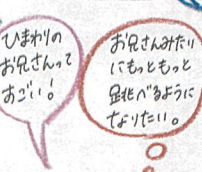 ひまわりの
お兄さんって
すごい!
お兄さんみたい
にもっともっと
跳べるように
なりたい。